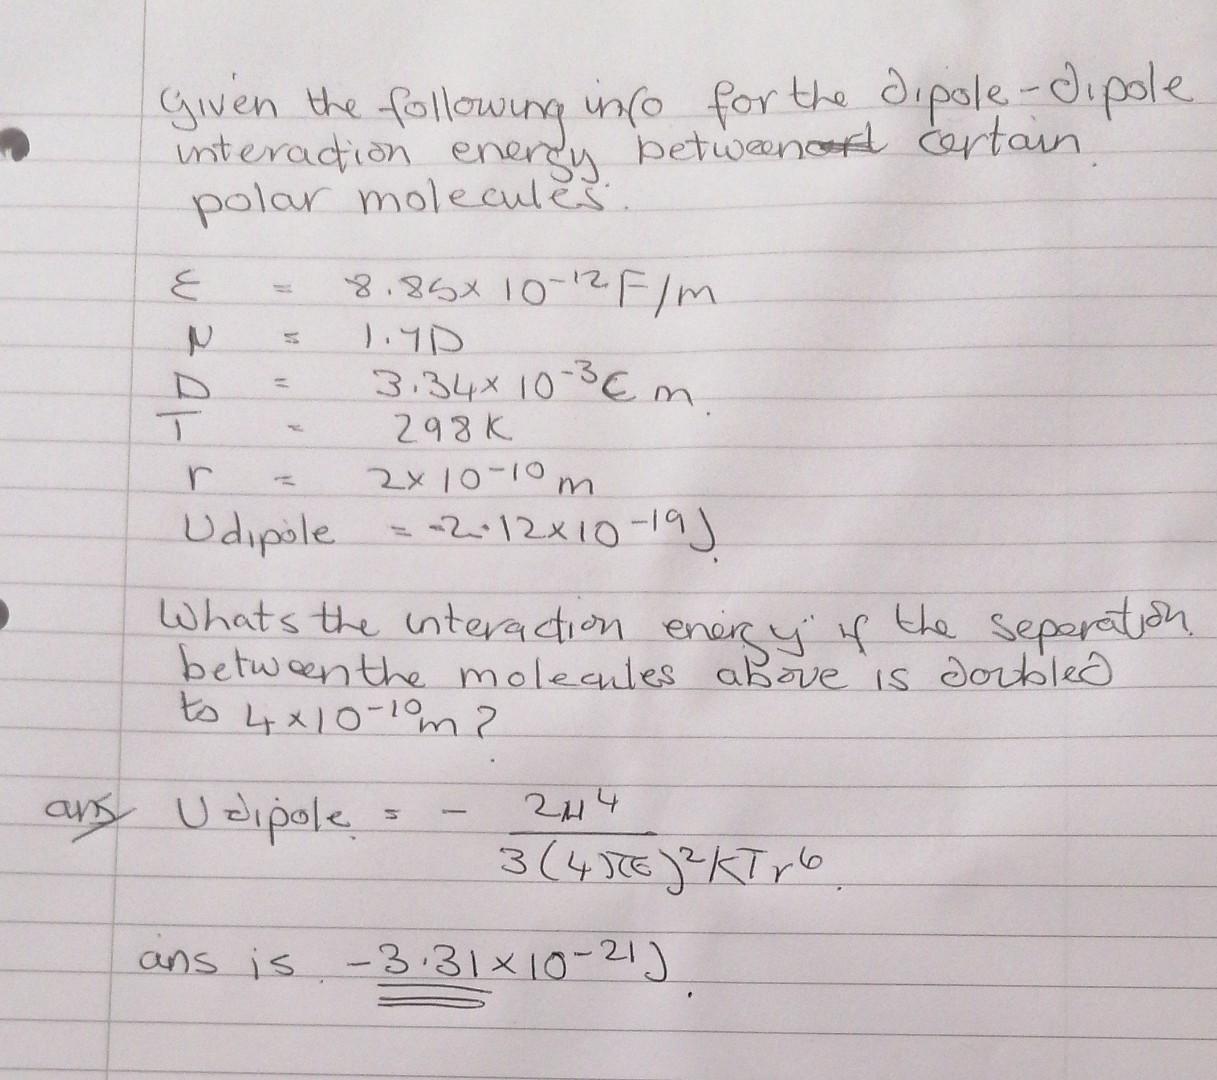 Given the following info for the dipole-dipole
interaction energy between certain
polar molecules.
ε = 8.85x 10-12 F/m
μ = 1.7D
D = 3.34x 10-3 C m.
T = 298K
r = 2x 10-10 m
Udipole = -2.12x10-19J.
Whats the interaction energy if the seperation
between the molecules above is doubled
to 4x10-10m?
ans Udipole. = - 2μ4
3(4πε)2kTr6.
ans is. -3.31x10-21J.